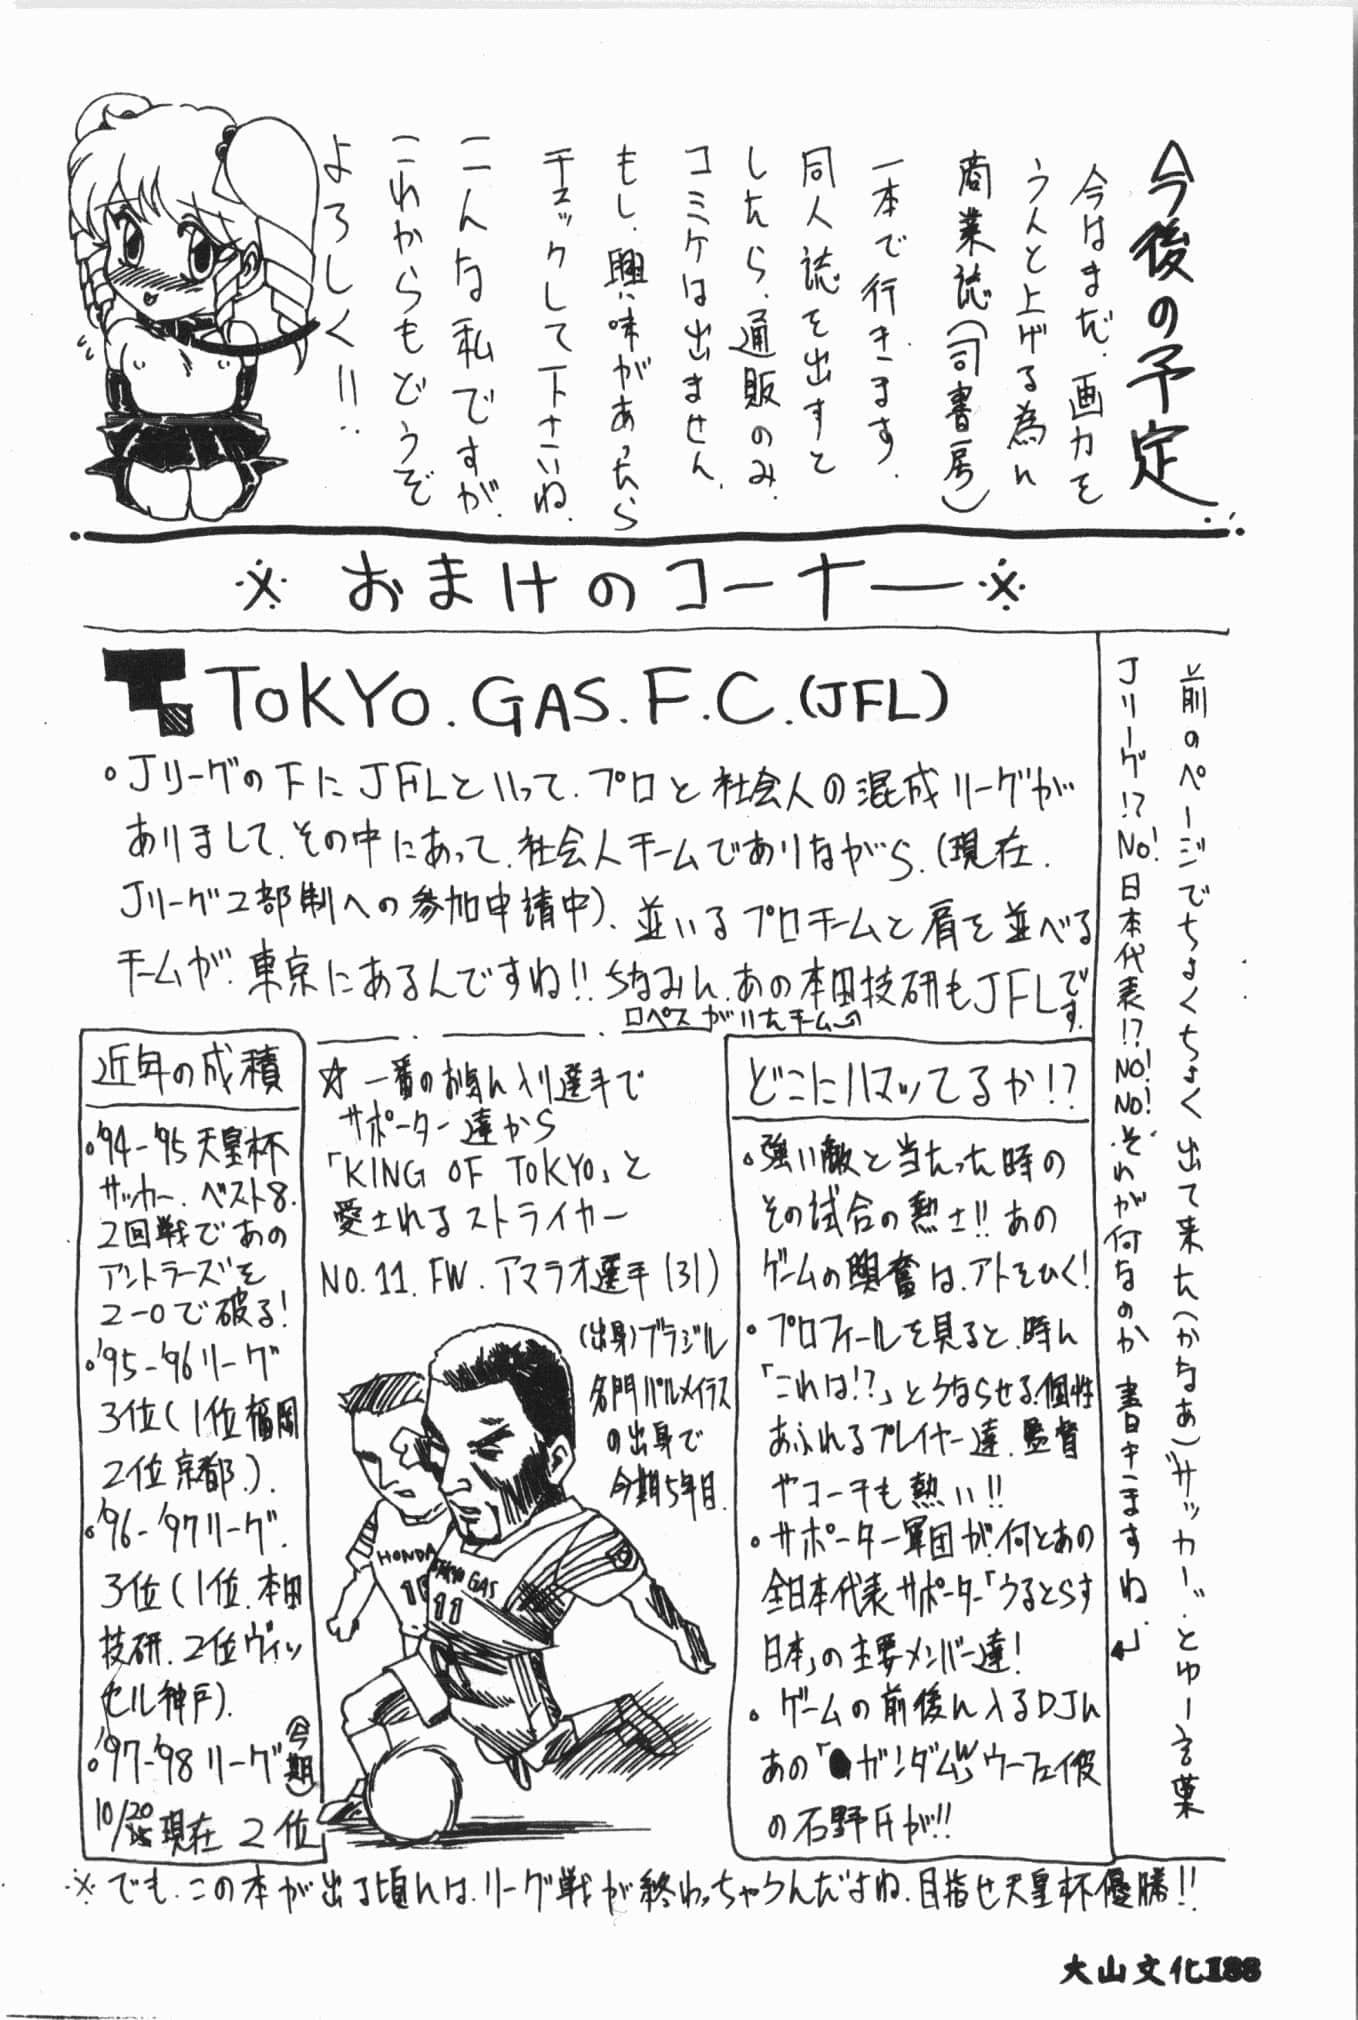 今後の予定
今はまだ、画力を
うんと上げる為に
商業誌(司書房)
一本で行きます。
同人誌を出すと
したら、通販のみ。
コミケは出ません。
もし、興味があったら
チェックして下さいね。
こんな私ですが、
これからもどうぞ
よろしく!!
※おまけのコーナー※
前のページでちょくちょく出て来た(かなぁ)“サッカー”。とゆー言葉
Jリーグ!?NO!日本代表!?NO!NO!それが何なのか書きますね。
TOKYO.GAS.F.C.(JFL)
Jリーグの下にJFLといって、プロと社会人の混成リーグが
ありまして、その中にあって、社会人チームでありながら、(現在、
Jリーグ2部制への参加申請中)、並いるプロチームと肩を並べる
チームが、東京にあるんですね!!ちなみに、あの本田技研もJFLです。
ロペスがいたチーム
近年の成積
'94-'95天皇杯
サッカー、ベスト8。
2回戦であの
アントラーズを
2-0で破る!
'95-'96リーグ
3位(1位福岡
2位京都、)。
'96-'97リーグ。
3位(1位、本田
技研、2位ヴィッ
セル神戸)。
'97-'98リーグ(今期)
10/20現在 2位
☆一番のお気に入り選手で
サポーター達から
「KING OF TOKYO」と
愛されるストライカー
NO.11.FW.アマラオ選手(31)
(出身)ブラジル
名門パルメイラス
の出身で
今期5年目。
HONDA
TOKYO GAS
11
どこにハマッてるか!?
強い敵と当たった時の
その試合の熱さ!!あの
ゲームの興奮は、アトをひく!
プロフィールを見ると、時に
「これは!?」とうならせる、個性
あふれるプレイヤー達、監督
やコーチも熱い!!
サポーター軍団が、何とあの
全日本代表サポーター「うるとらす
日本」の主要メンバー達!
ゲームの前後に入るDJに
あの「ガンダムW」ウーフェイ役
の石野氏が!!
※でも、この本が出る頃には、リーグ戦が終わっちゃうんだよね、目指せ天皇杯優勝!!
大山文化188